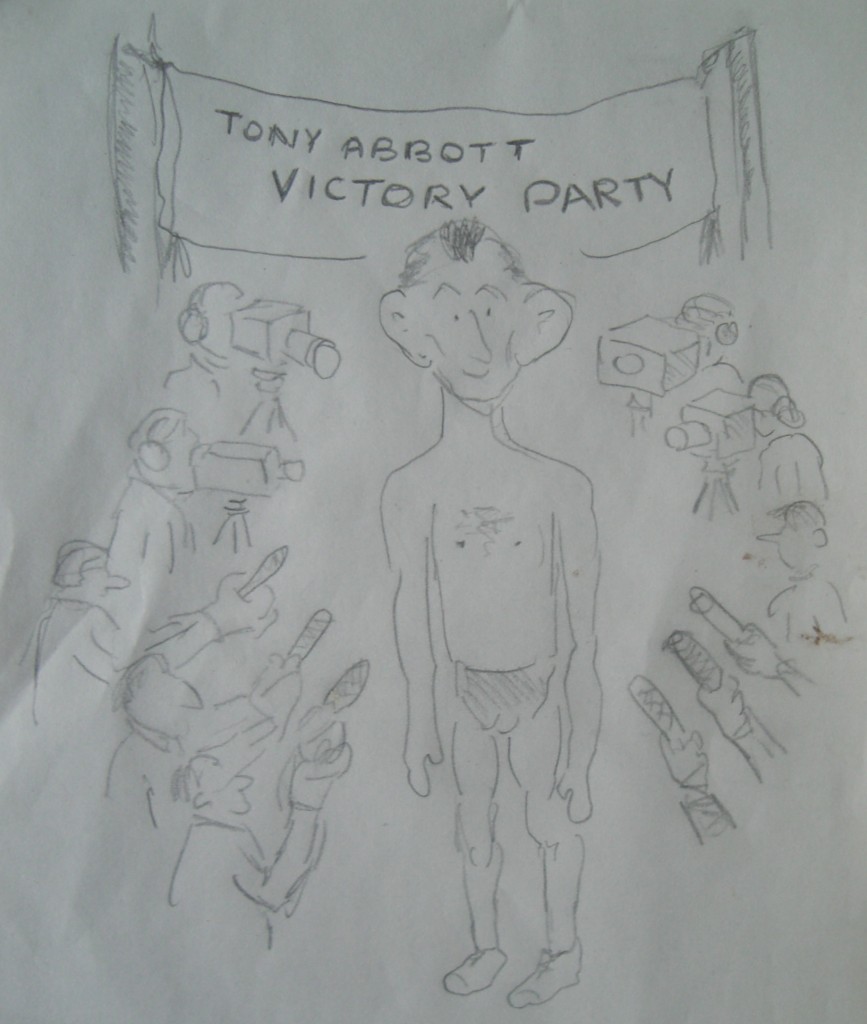 TONY ABBOTT
VICTORY PARTY